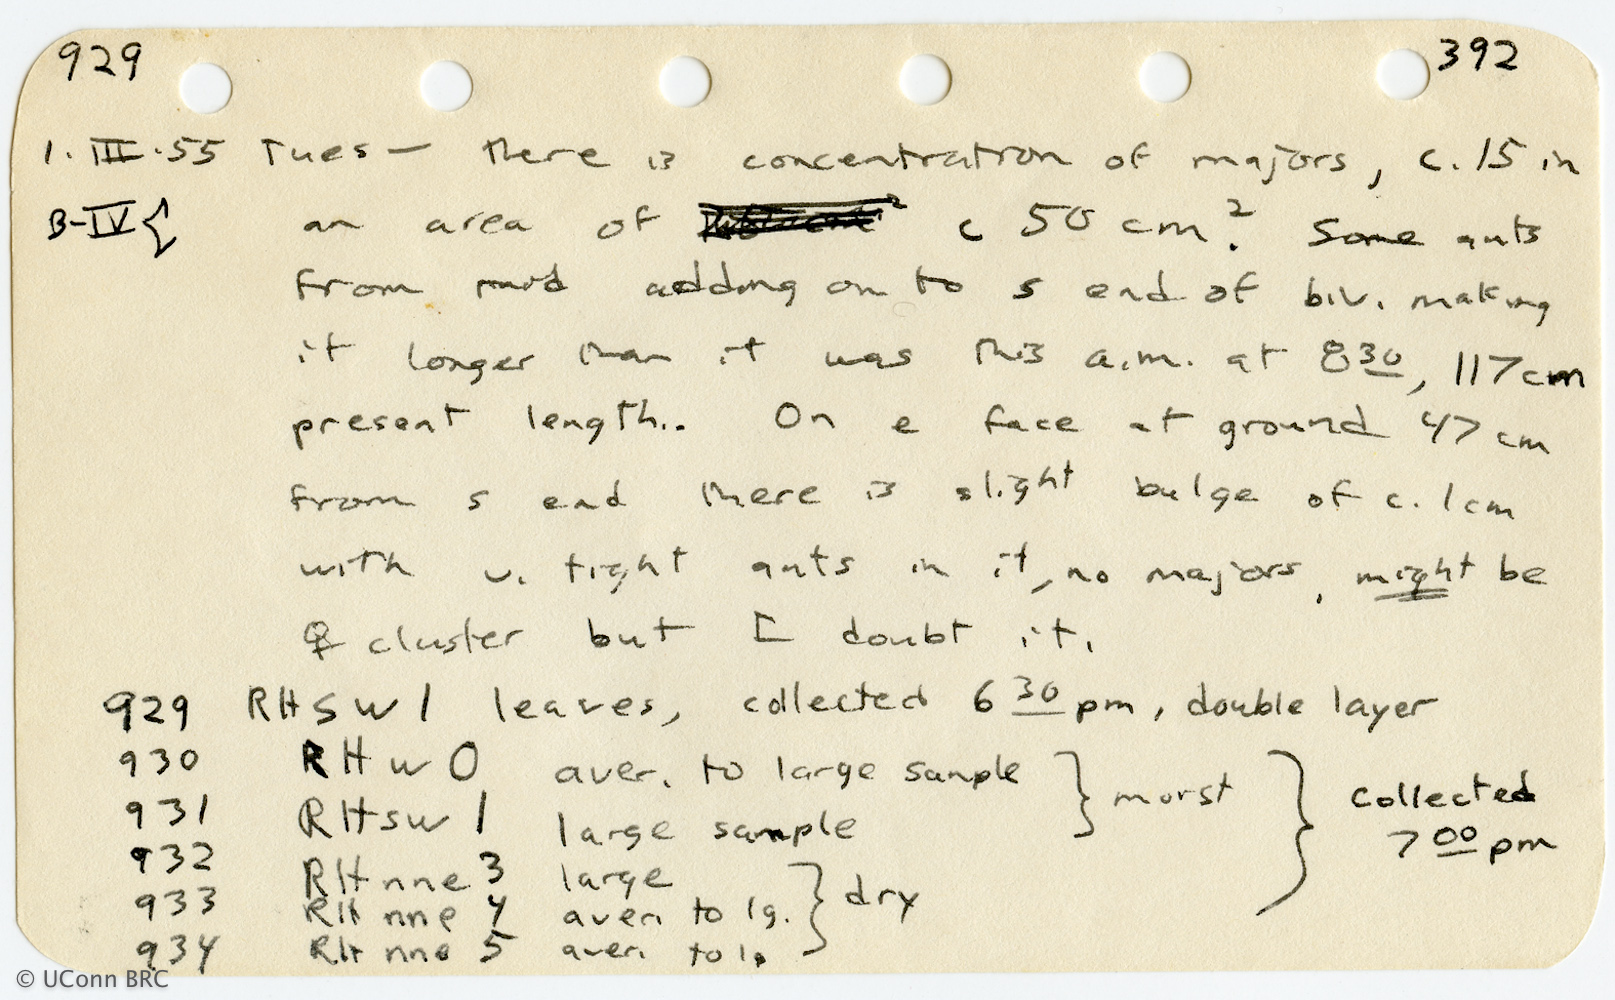 929 392
1. III. 55 Tues — there is concentration of majors, c. 15 in
B-IV { an area of c 50 cm². Some ants
from mid adding on to s end of biv. making
it longer than it was this a.m. at 8 30, 117 cm
present length.. On e face at ground 47 cm
from s end there is slight bulge of c. 1 cm
with v. tight ants in it, no majors, might be
♀ cluster but I doubt it.
929 RHsw1 leaves, collected 6 30 pm, double layer
930 RHw0 aver. to large sample } moist } collected
931 RHsw1 large sample 7 00 pm
932 RH nne 3 large } dry
933 RH nne 4 aver. to lg.
934 RH nne 5 aver. to lg.
© UConn BRC